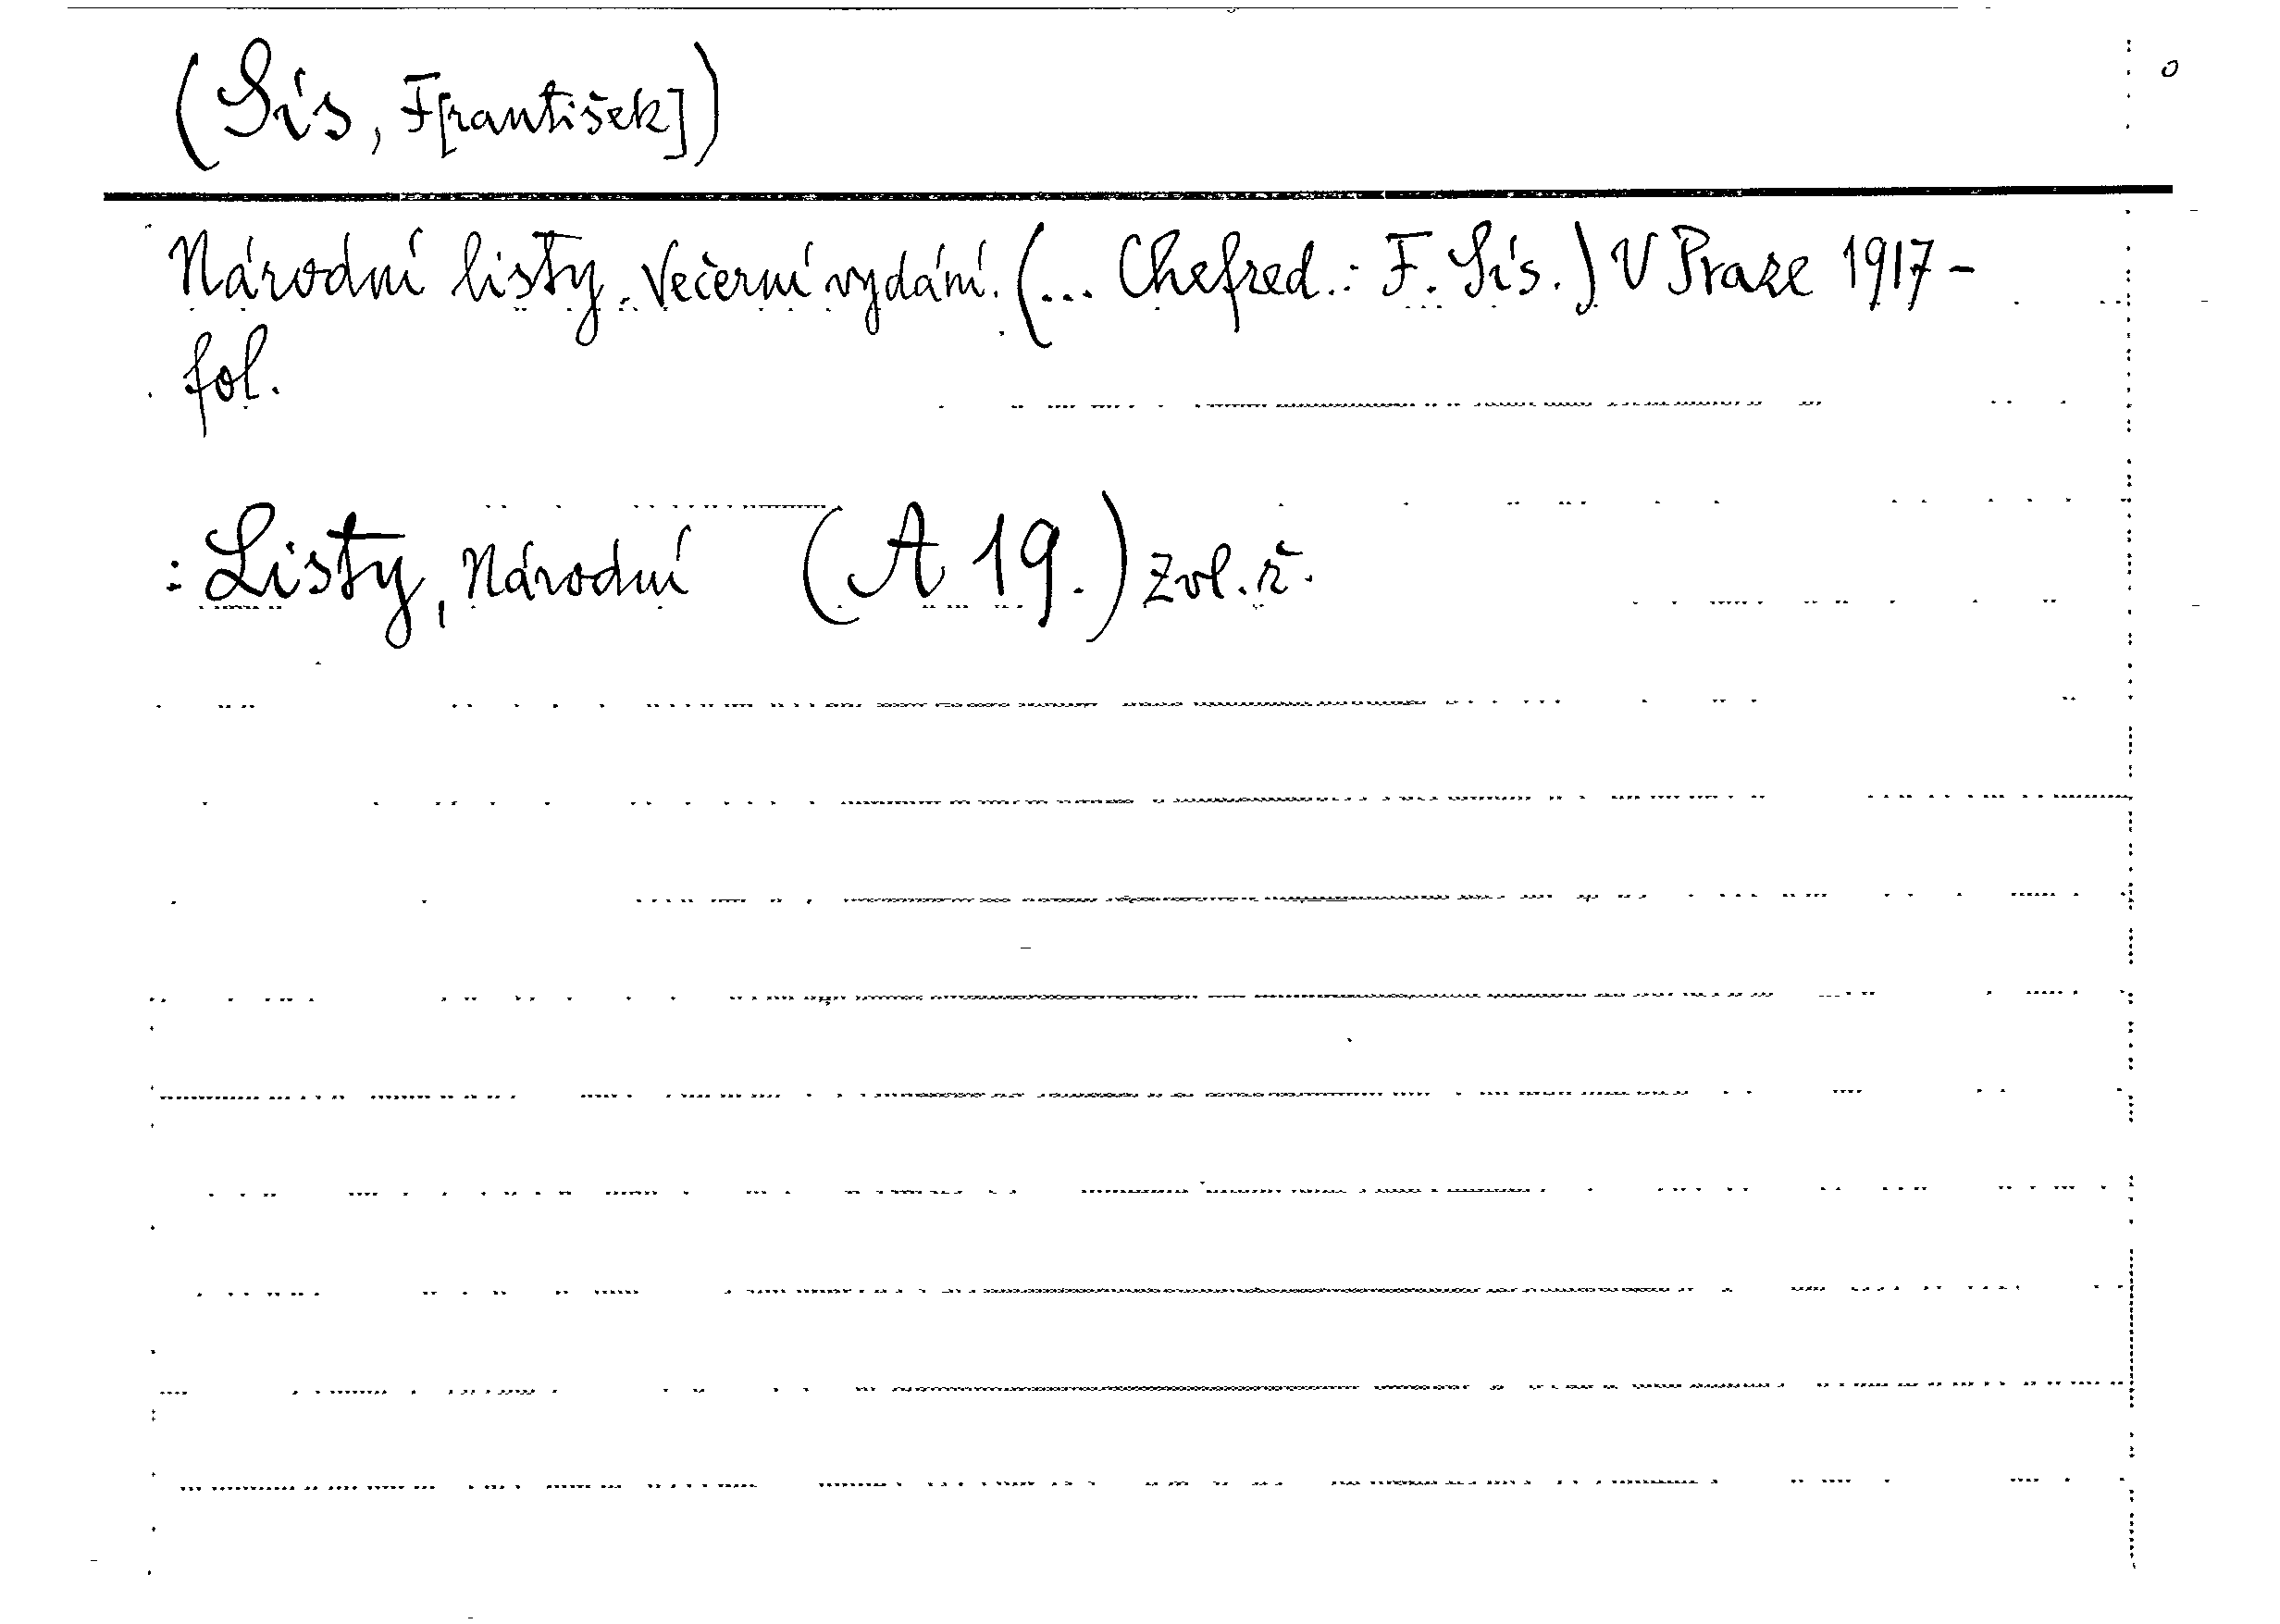 (Sís, F[rantišek])
Národní listy. Večerní vydání. (... Chefred.: F. Sís.) V Praze 1917-
fol.
: Listy, Národní (A 19.) zvl. ř.